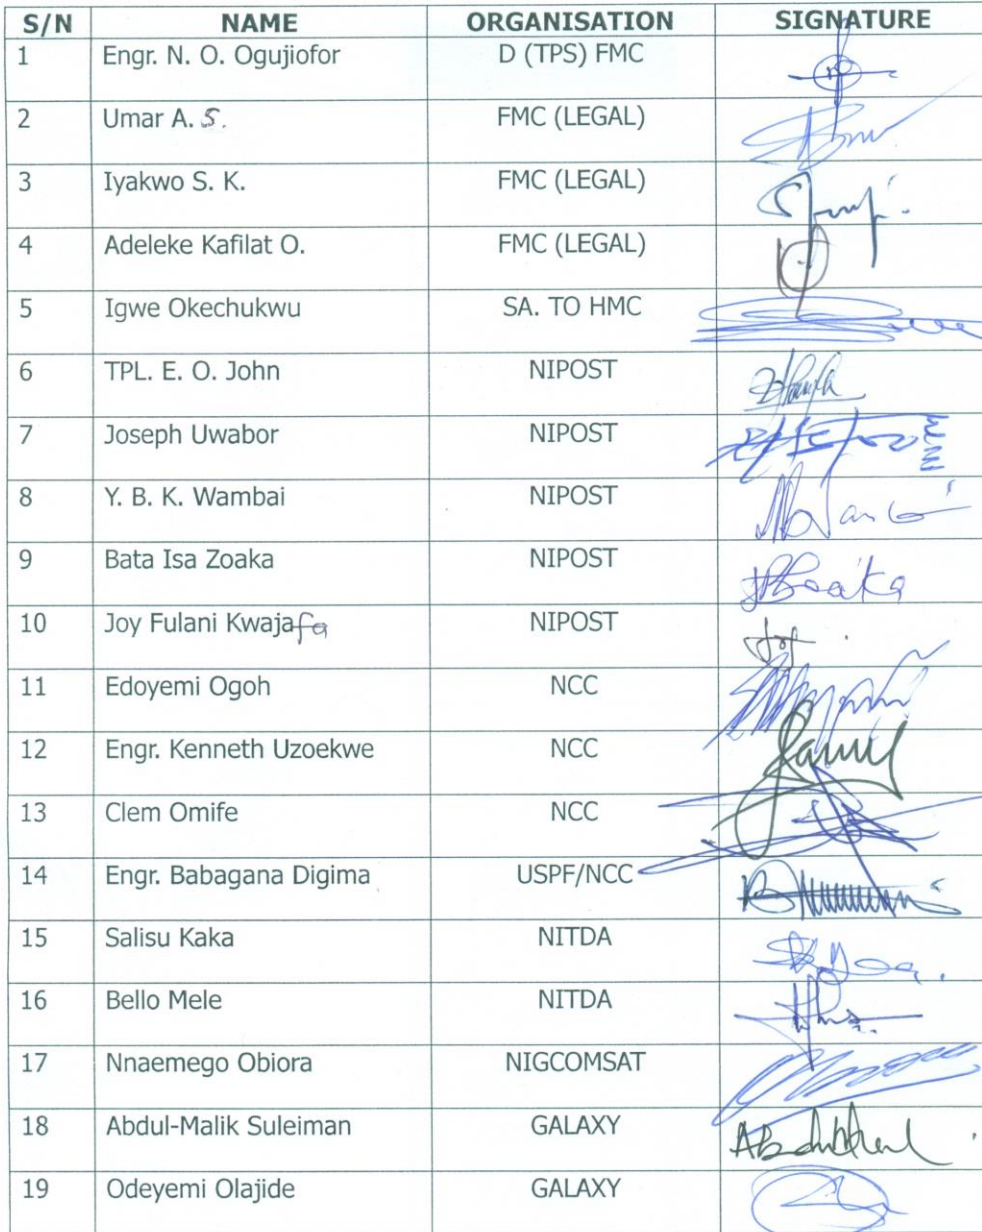 S/N NAME ORGANISATION SIGNATURE
1 Engr. N. O. Ogujiofor D (TPS) FMC
2 Umar A. S. FMC (LEGAL)
3 Iyakwo S. K. FMC (LEGAL)
4 Adeleke Kafilat O. FMC (LEGAL)
5 Igwe Okechukwu SA. TO HMC
6 TPL. E. O. John NIPOST
7 Joseph Uwabor NIPOST
8 Y. B. K. Wambai NIPOST
9 Bata Isa Zoaka NIPOST
10 Joy Fulani Kwajafa NIPOST
11 Edoyemi Ogoh NCC
12 Engr. Kenneth Uzoekwe NCC
13 Clem Omife NCC
14 Engr. Babagana Digima USPF/NCC
15 Salisu Kaka NITDA
16 Bello Mele NITDA
17 Nnaemego Obiora NIGCOMSAT
18 Abdul-Malik Suleiman GALAXY
19 Odeyemi Olajide GALAXY